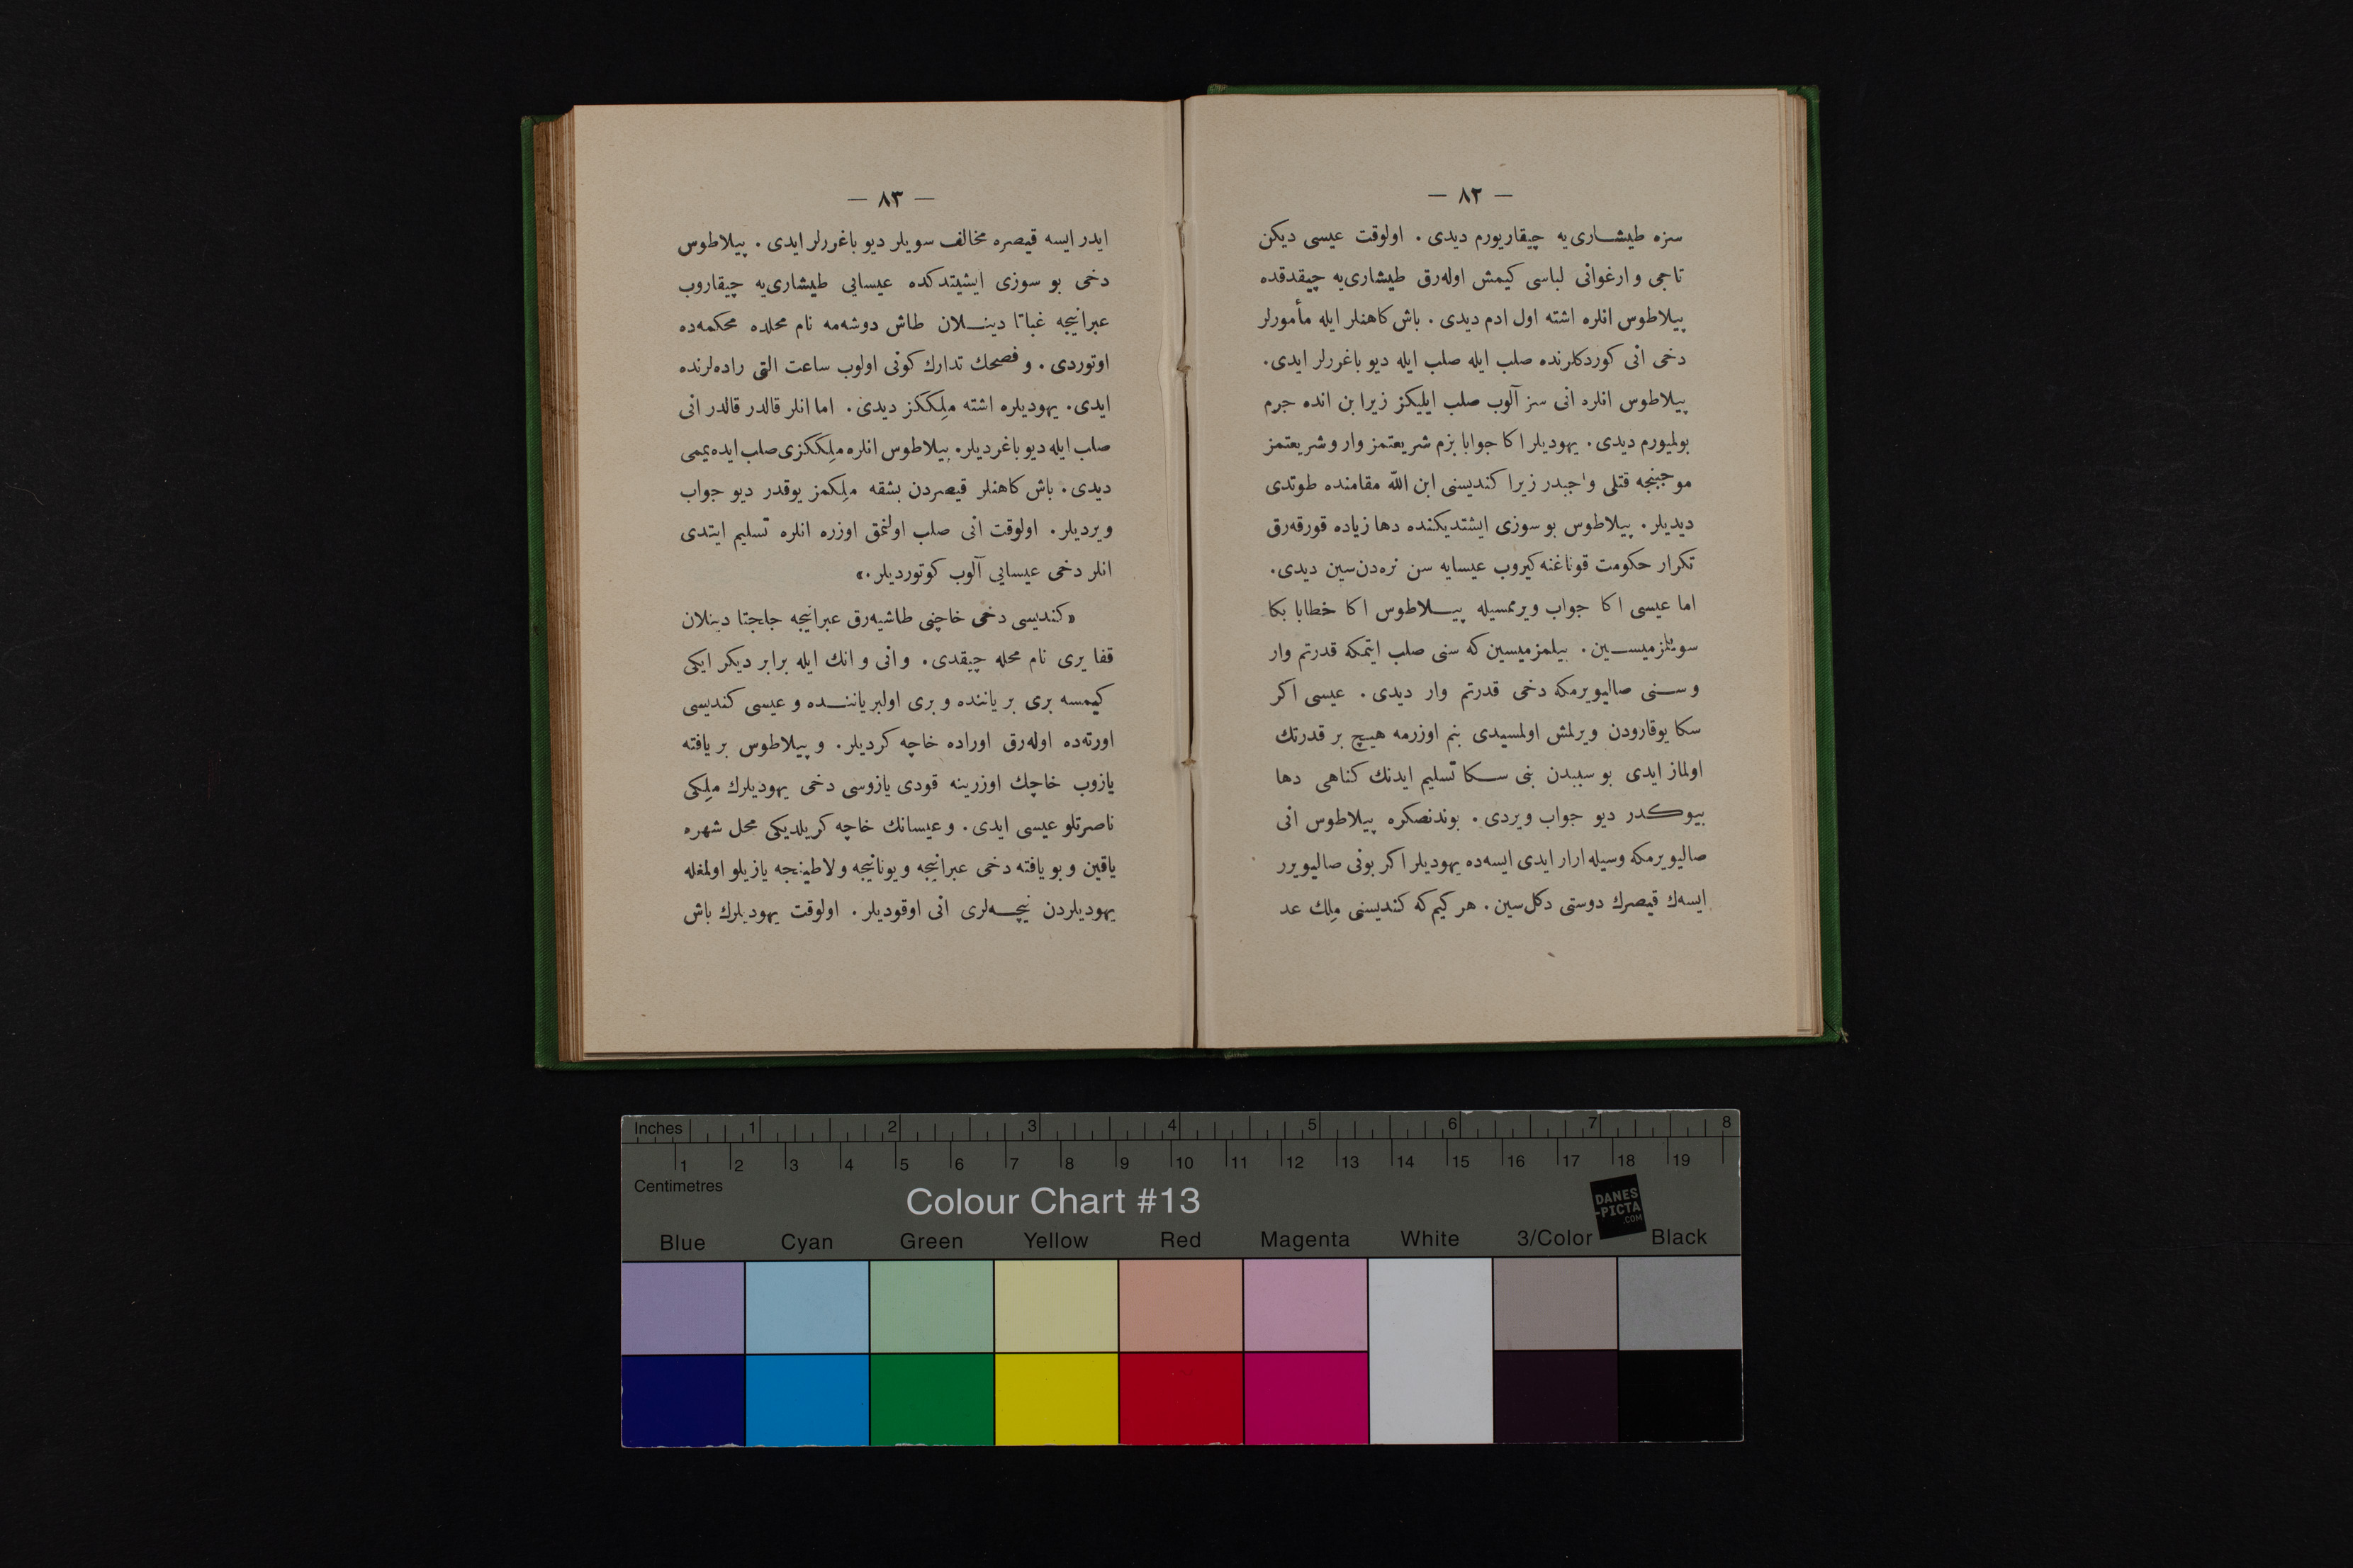 — ٨٢ —
سزه طیشاری‌یه چیقاریورم دیدی . اولوقت عیسی دیکن
تاجی و ارغوانی لباسی کیمش اوله‌رق طیشاری‌یه چیقدقده
پیلاطوس انلره اشته اول ادم دیدی . باش کاهنلر ایله مأمورلر
دخی انی کوردکلرنده صلب ایله صلب ایله دیو باغررلر ایدی .
پیلاطوس انلره انی سز آلوب صلب ایلیکز زیرا بن انده جرم
بولمیورم دیدی . یهودیلر اکا جوابا بزم شریعتمز وار و شریعتمز
موجبنجه قتلی واجبدر زیرا کندیسنی ابن الله مقامنده طوتدی
دیدیلر . پیلاطوس بو سوزی ایشتدیکنده دها زیاده قورقه‌رق
تکرار حکومت قوناغنه کیروب عیسایه سن نره‌دن‌سین دیدی .
اما عیسی اکا جواب ویرمسیله پیلاطوس اکا خطابا بکا
سویلمزمیسین . بیلمزمیسین که سنی صلب ایتمکه قدرتم وار
و سنی صالیویرمکه دخی قدرتم وار دیدی . عیسی اکر
سکا یوقارودن ویرلمش اولمسیدی بنم اوزرمه هیچ بر قدرتك
اولماز ایدی بو سببدن بنی سکا تسلیم ایدنك کناهی دها
بیوکدر دیو جواب ویردی . بوندنصکره پیلاطوس انی
صالیویرمکه وسیله ارار ایدی ایسه‌ده یهودیلر اکر بونی صالیویرر
ایسه‌ك قیصرك دوستی دکل‌سین . هر کیم که کندیسنی مِلِك عد
— ٨٣ —
ایدر ایسه قیصره مخالف سویلر دیو باغررلر ایدی . پیلاطوس
دخی بو سوزی ایشیتدکده عیسایی طیشاری‌یه چیقاروب
عبرانیجه غباتا دینلان طاش دوشه‌مه نام محلده محکمه‌ده
اوتوردی . و فصحك تدارك کونی اولوب ساعت التی راده‌لرنده
ایدی . یهودیلره اشته ملِککز دیدی . اما انلر قالدر قالدر انی
صلب ایله دیو باغردیلر . پیلاطوس انلره ملِککزی صلب ایده‌یممی
دیدی . باش کاهنلر قیصردن بشقه ملِکمز یوقدر دیو جواب
ویردیلر . اولوقت انی صلب اولنمق اوزره انلره تسلیم ایتدی
انلر دخی عیسایی آلوب کوتوردیلر .»
«کندیسی دخی خاچنی طاشیه‌رق عبرانیجه جلجتا دینلان
قفا یری نام محله چیقدی . و انی و انك ایله برابر دیکر ایکی
کیمسه بری بر یاننده و بری اولبر یاننده و عیسی کندیسی
اورته‌ده اوله‌رق اوراده خاچه کردیلر . و پیلاطوس بر یافته
یازوب خاچك اوزرینه قودی یازوسی دخی یهودیلرك ملِکی
ناصرتلو عیسی ایدی . و عیسانك خاچه کریلدیکی محل شهره
یاقین و بو یافته دخی عبرانیجه و یونانیجه و لاطینجه یازیلو اولمغله
یهودیلردن نیچه‌لری انی اوقودیلر . اولوقت یهودیلرك باش
Inches 1 2 3 4 5 6 7 8
1 2 3 4 5 6 7 8 9 10 11 12 13 14 15 16 17 18 19
Centimetres
Colour Chart #13
DANES
-PICTA
.COM
Blue Cyan Green Yellow Red Magenta White 3/Color Black